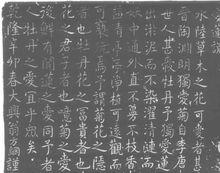 水陸草木之花可愛者甚
晉陶淵明獨愛菊自李唐
世人甚愛牡丹予獨愛蓮
出淤泥而不染濯清漣而
妖中通外直不蔓不枝香
益清亭亭淨植可遠觀而
可褻玩焉予謂菊花之隱
者也牡丹花之富貴者也
花之君子者也噫菊之愛
後鮮有聞蓮之愛同予者
人牡丹之愛宜乎眾矣
乾隆辛卯春大興翁方綱謹